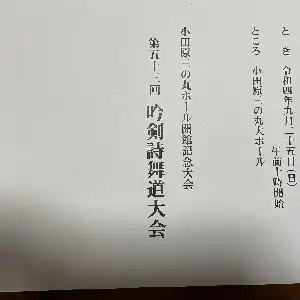 とき 令和四年九月二十五日(日)
午前十時開始
ところ 小田原三の丸大ホール
小田原三の丸ホール開館記念大会
第五十三回 吟剣詩舞道大会